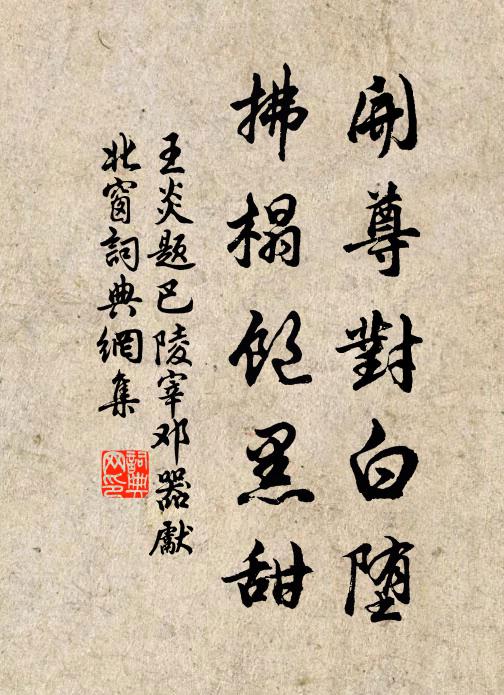 開尊對白堕
拂榻飽黑甜
王炎题巴陵宰邓器獻
北窗詞典網集
詞典网印